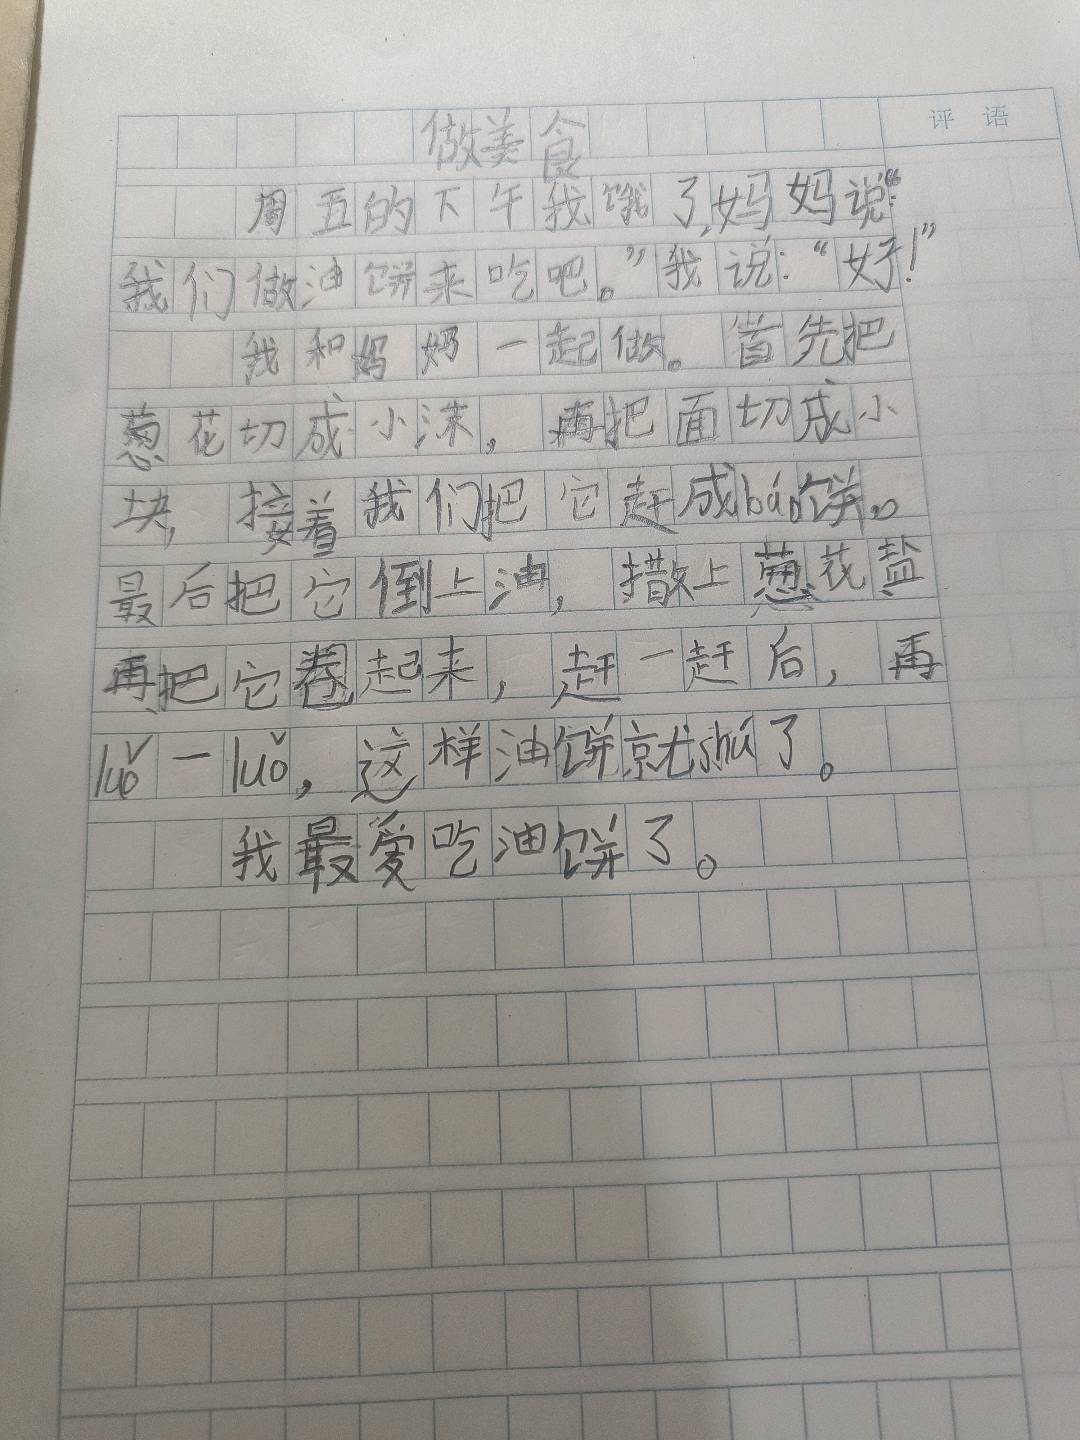 评 语
做美食
周五的下午我饿了,妈妈说:“
我们做油饼来吃吧。”我说:“好!”
我和妈妈一起做。首先把
葱花切成小沫,再把面切成小
块,接着我们把它赶成báo饼。
最后把它倒上油,撒上葱花盐
再把它卷起来,赶一赶后,再
luǒ一luǒ,这样油饼就shú了。
我最爱吃油饼了。